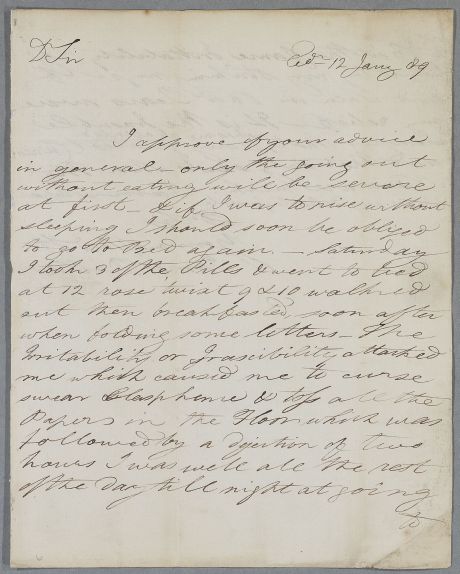 Dr Sir
Edr 12 Jany 89
I approve of your advice
in general - only the going out
without eating will be severe
at first - & if I was to rise without
sleeping I should soon be obliged
to go to Bed again. - Saturday
I took 3 of the Pills & went to bed
at 12 rose twixt 9 & 10 walked
out then breakfasted soon after
when folding some letters - The
Irritability or Irascibility attacked
me which caused me to curse
swear Blaspheme & toss all the
Papers in the Floor which was
followed by a dejection of two
hours I was well all the rest
of the Day till night at going
to